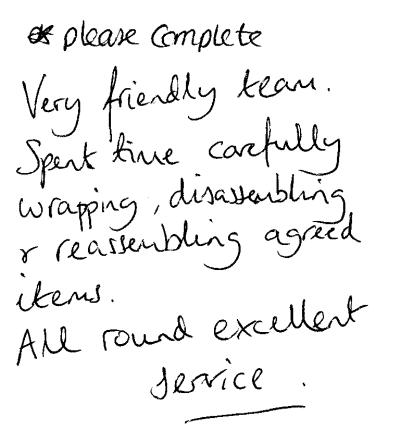 please complete
Very friendly team.
Spent time carefully
wrapping, disassembling
& reassembling agreed
items.
All round excellent
service.